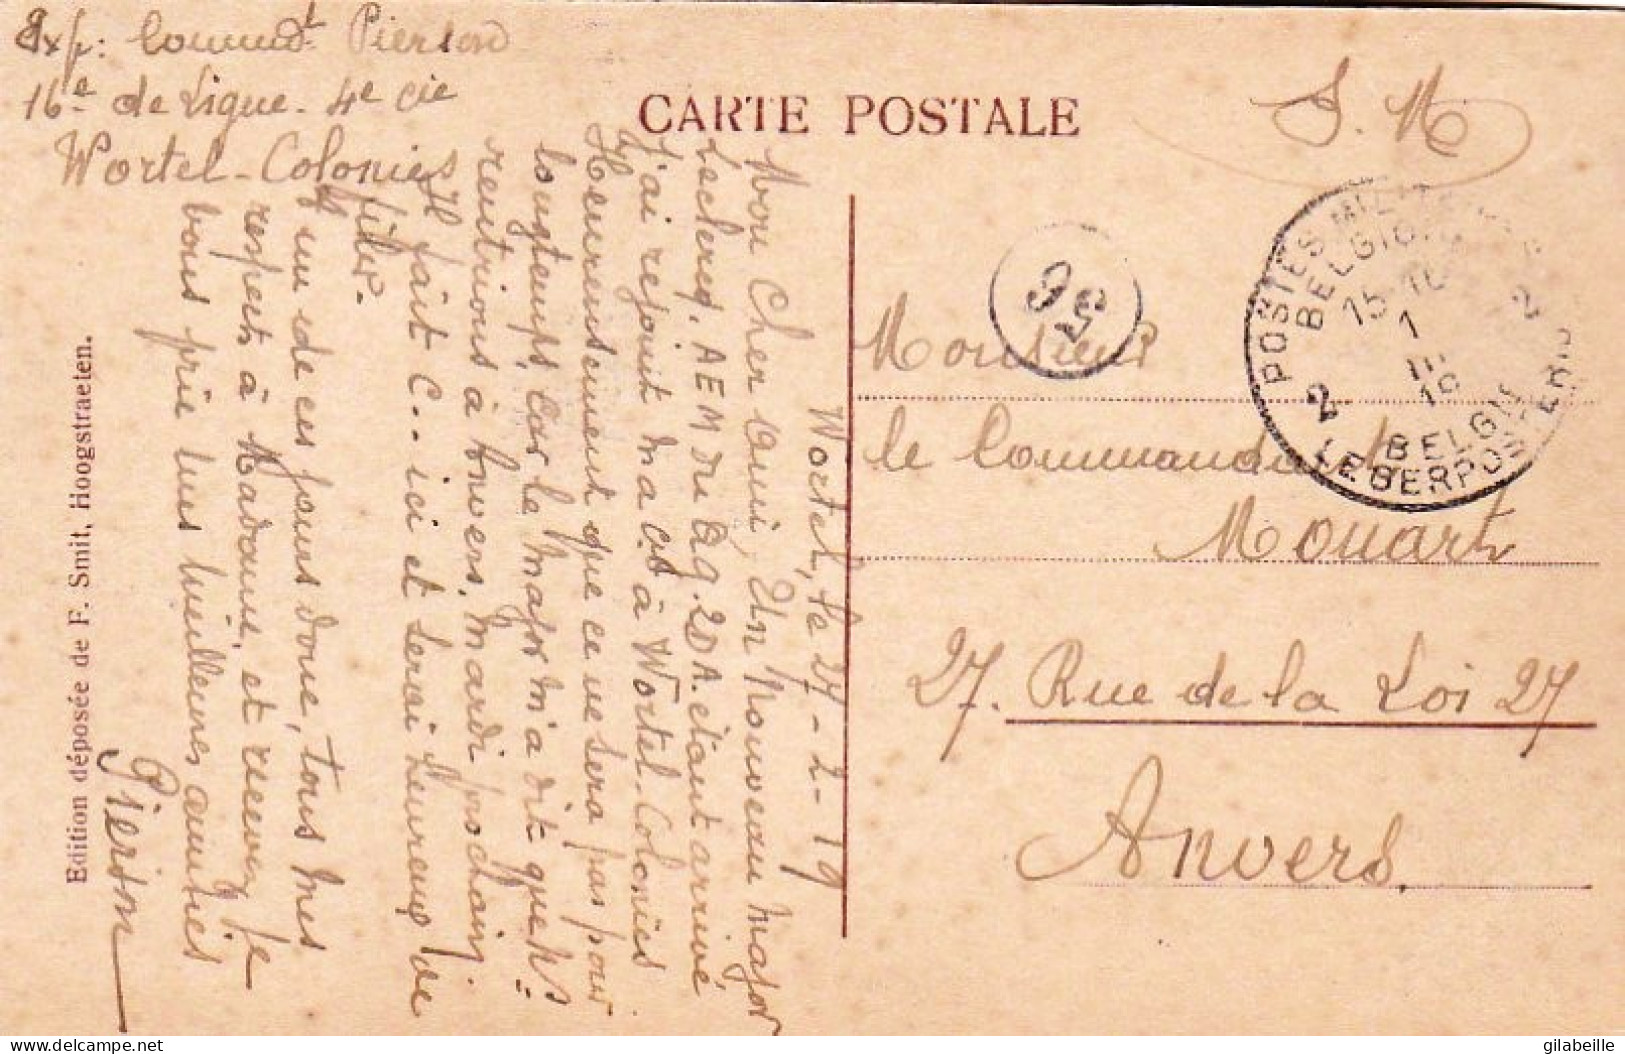 Exp: Command.t Pierson
16e de Ligne. 4e Cie
Wortel-Colonies
CARTE POSTALE
S. M
Wortel, le 27-2-19
Mon Cher Oui, Un Nouveau major
Leclercq, AEM du QG. 2DA. étant arrivé
j'ai rejoint ma Cie à Wortel-Colonies
Heureusement que ce ne sera pas pour
longtemps, car le major m'a dit que ns
rentrions à Anvers, mardi prochain.
Il fait C... ici et serai heureux de
filer.
A un de ces jours donc, tous mes
respects à Madame, et reçois je
vous prie mes meilleures amitiés
Pierson
Edition déposée de F. Smit, Hoogstraeten.
POSTES MILITAIRES
BELGIQUE
15-16
1
III
19
2
2
BELGIE
LEGERPOSTERIJ
56
Monsieur
le Commandant
Mouart
27. Rue de la Loi 27
Anvers.
delcampe.net
gilabeille